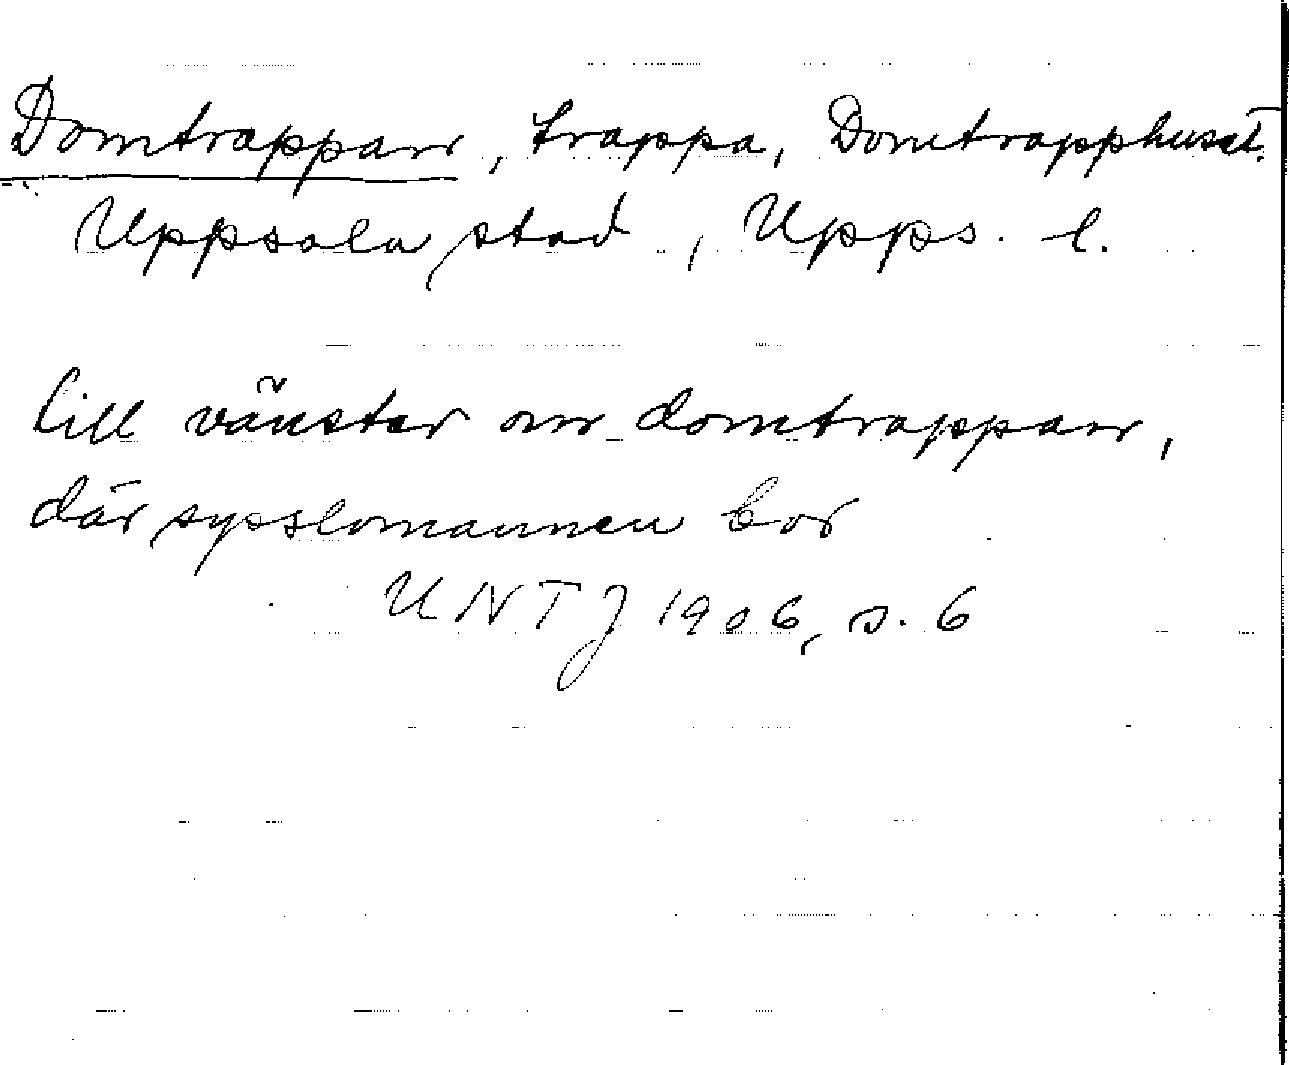 Domtrappan, trappa, Domtrapphuset.
Uppsala stad, Upps. l.
till vänster om domtrappan,
där sysslomannen bor
UNTJ 1906, s. 6